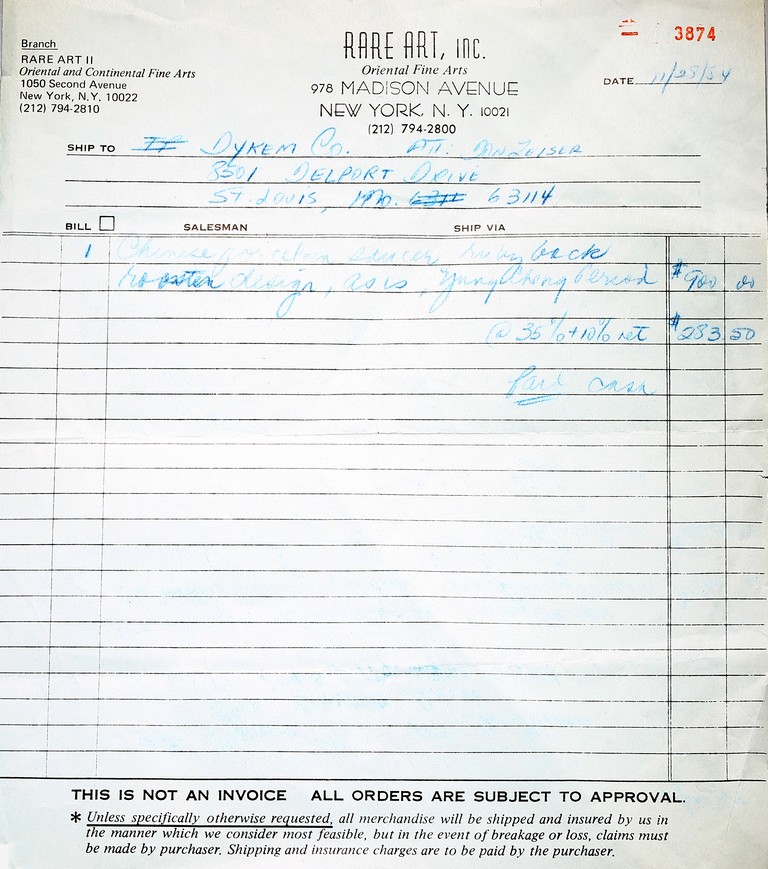 3874
Branch
RARE ART II
Oriental and Continental Fine Arts
1050 Second Avenue
New York, N.Y. 10022
(212) 794-2810
RARE ART, INC.
Oriental Fine Arts
978 MADISON AVENUE
NEW YORK, N. Y. 10021
(212) 794-2800
DATE 11/28/84
SHIP TO DYKEM CO. ATT:
8501 DELPORT DRIVE
ST. LOUIS, MO. 63114
BILL SALESMAN SHIP VIA
1 Chinese porcelain saucer ruby back
rooster design, as is, Yung Cheng Period $ 00
@ 35%+10% net $283 50
Paid cash
THIS IS NOT AN INVOICE ALL ORDERS ARE SUBJECT TO APPROVAL.
* Unless specifically otherwise requested, all merchandise will be shipped and insured by us in
the manner which we consider most feasible, but in the event of breakage or loss, claims must
be made by purchaser. Shipping and insurance charges are to be paid by the purchaser.